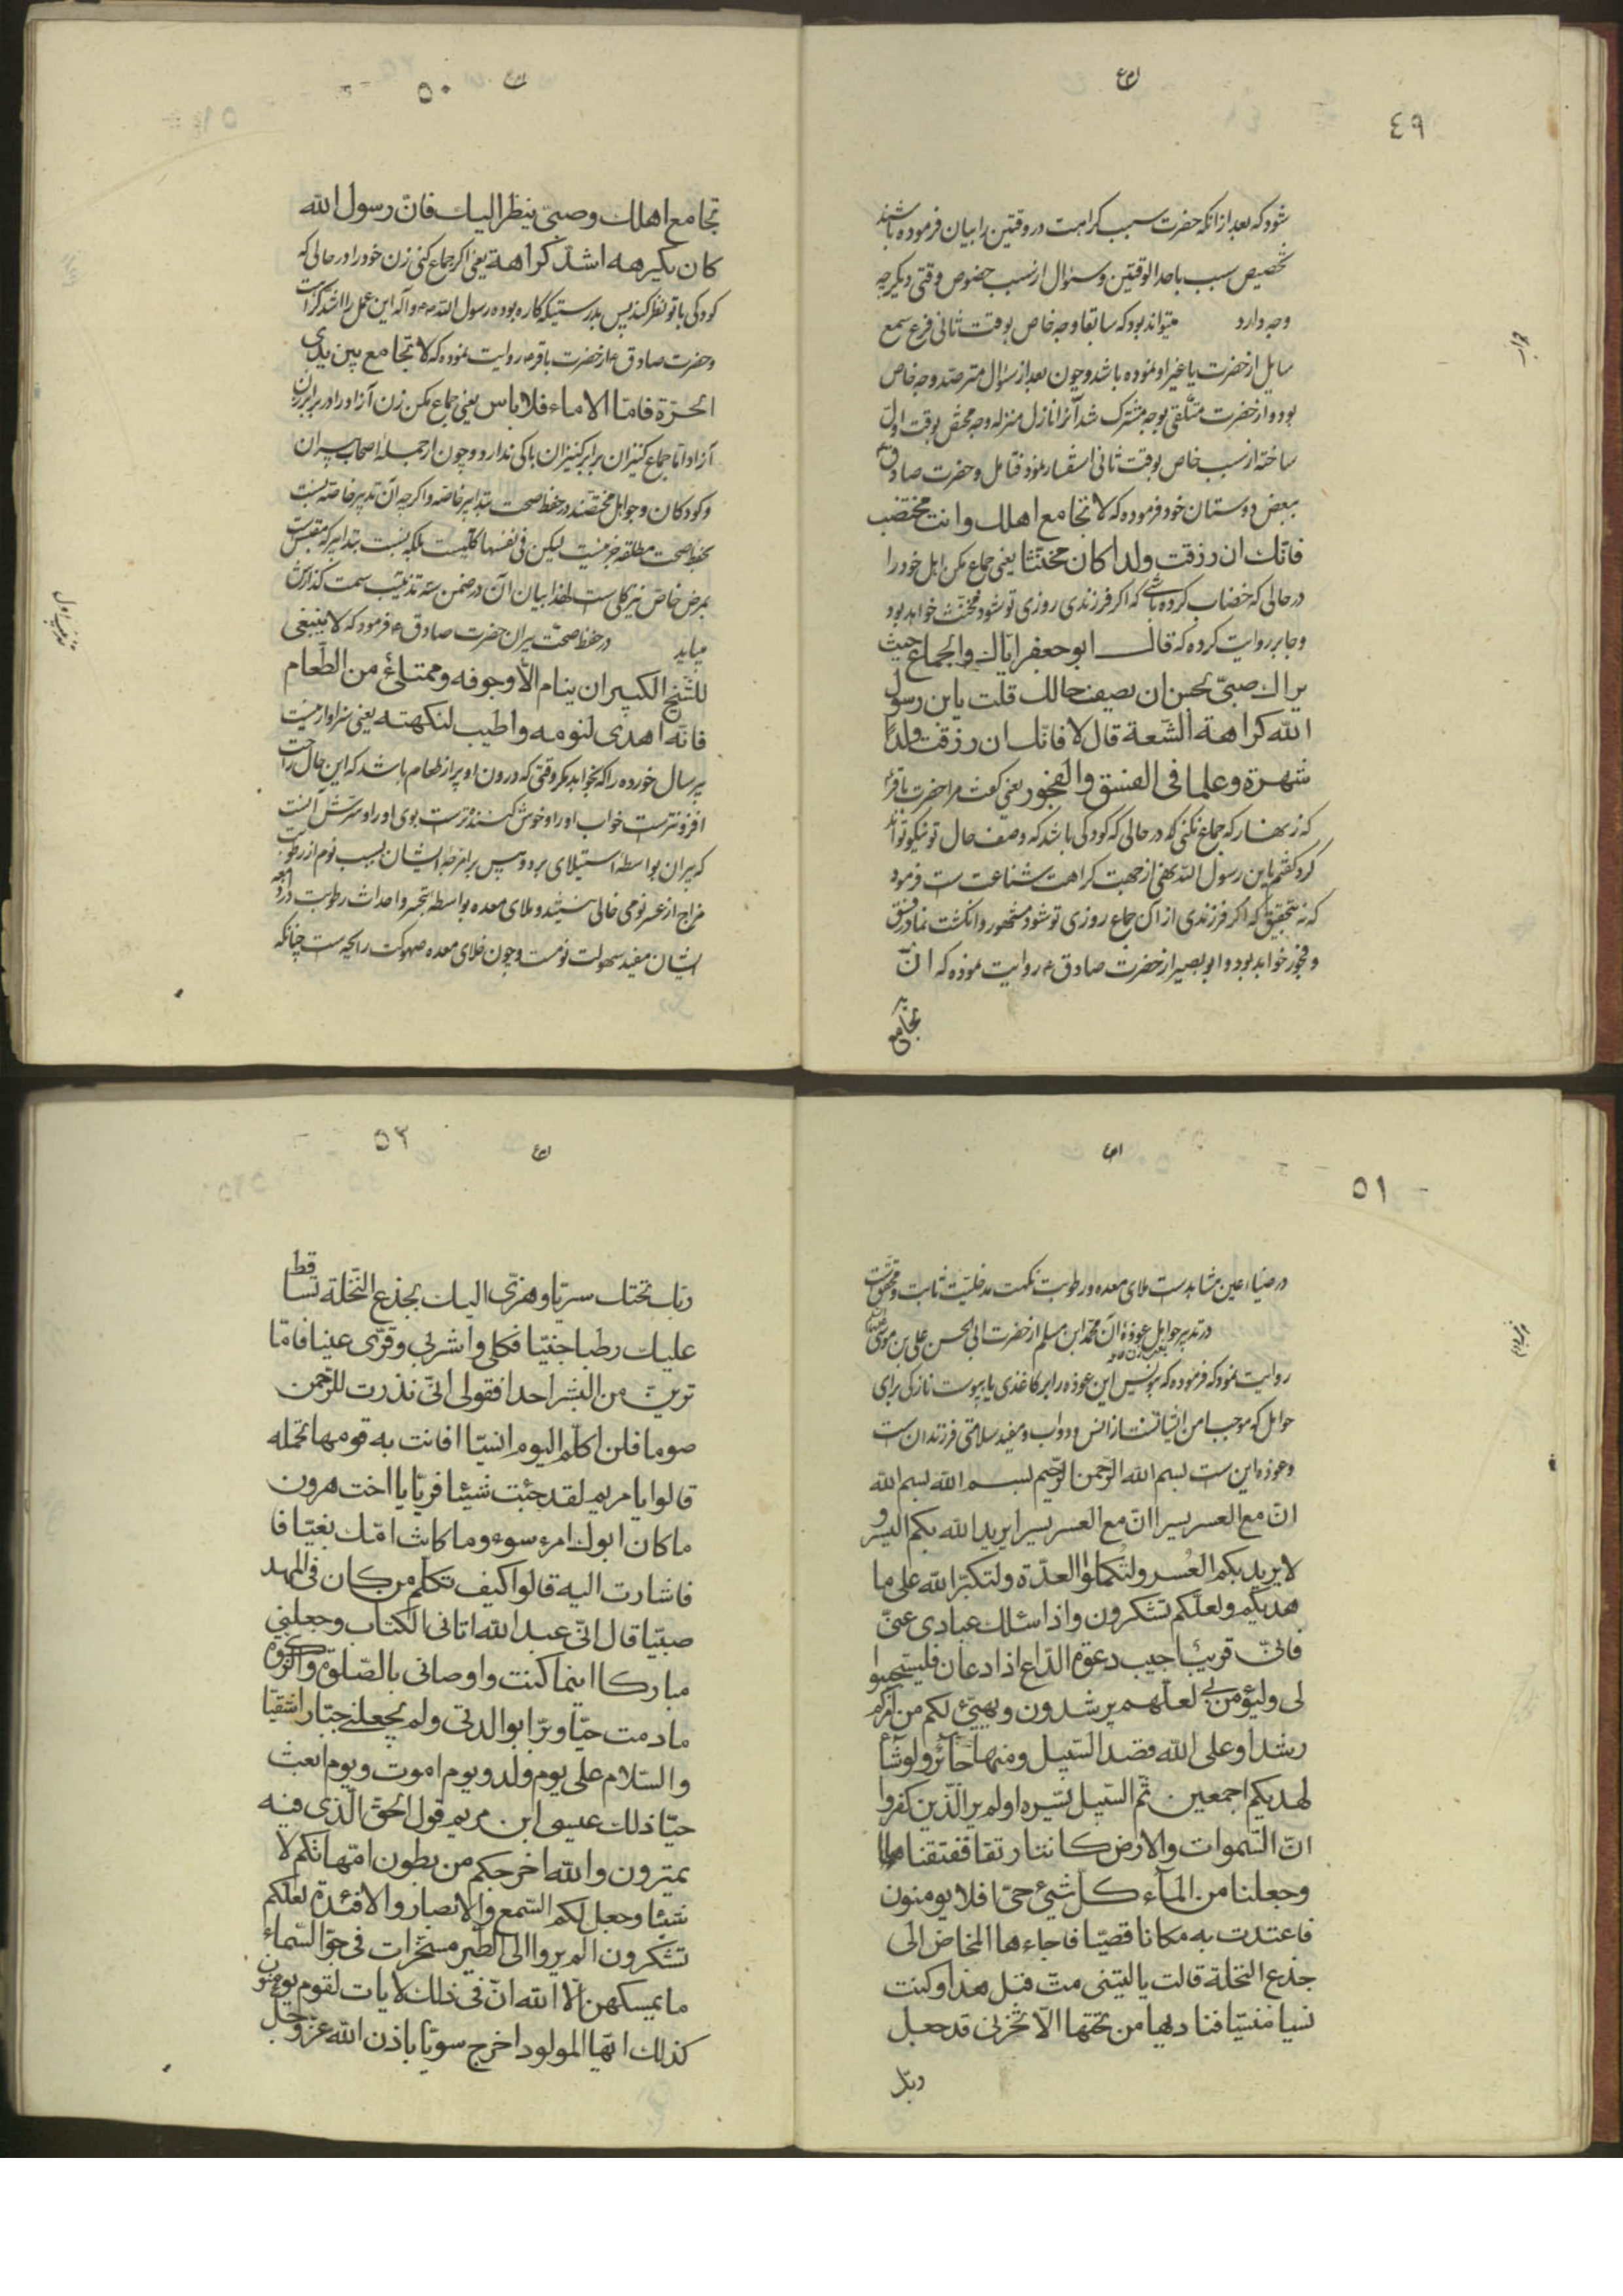 ٤٩
شود که بعد از آنکه حضرت سبب کراهت در وقتین را بیان فرموده باشند
تخصیص سبب باحد الوقتین و سئوال از سبب خصوص وقتی دیگر چه
وجه دارد میتواند بود که سابقا وجه خاص بوقت ثانی فرع سمع
سایل از حضرت یا غیر او نموده باشد و چون بعد از سئوال مترصد وجه خاص
بود و از حضرت متلقی بوجه مشترک شد آنرا نازل منزله وجه مختص بوقت اول
ساخته از سبب خاص بوقت ثانی استفسار نمود فتامل و حضرت صادق
ببعض دوستان خود فرموده که لا تجامع اهلك وانت مختضب
فانّك ان رزقت ولدا كان مخنثا یعنی جماع مکن اهل خود را
در حالی که خضاب کرده باشی که اگر فرزندی روزی تو شود مخنث خواهد بود
و جابر روایت کرده که قال ابو جعفر ایّاك والجماع حیث
یراك صبیّ یحسن ان یصف حالك قلت یابن رسول
الله كراهة الشنعة قال لا فانّك ان رزقت ولدًا
شهرة وعلما فی الفسق والفجور یعنی گفت مرا حضرت باقر
که زینهار که جماع نکنی در حالی که کودکی باشد که وصف حال تو نیکو تواند
کرد گفتم یابن رسول الله یعنی از جهت کراهت شناعت ست فرمود
که نه بتحقیق که اگر فرزندی از آن جماع روزی تو شود مشهور و انگشت نما در فسق
و فجور خواهد بود و ابو بصیر از حضرت صادق ع روایت نموده که انّ
تجامع
٥٠
تجامع اهلك وصبیّ ینظر الیك فانّ رسول الله
كان یكرهه اشدّ كراهة یعنی اگر جماع کنی زن خود را در حالی که
کودکی با تو نظر کند پس بدرستیکه کاره بوده رسول الله ص و آله این عمل را اشد کراهت
و حضرت صادق ع از حضرت باقر ع روایت نموده که لا تجامع بین یدی
الحرّة فامّا الاماء فلا باس یعنی جماع مکن زن آزاد را در برابر زن
آزاد اما جماع کنیزان برابر کنیزان باکی ندارد و چون از جمله اصحاب پیران
و کودکان و حوامل مختصّند در حفظ صحت بتدابیر خاصه و اگر چه آن تدبیر خاصه نسبت
بحفظ صحت مطلقه جزئیست لیکن فی نفسها کلیست بلکه نسبت بتدابیر که مقتبس
بمرض خاص نیز کلی ست لهذا بیان آن در ضمن سه تذنیب سمت گذارش
میابد در حفظ صحّت پیران حضرت صادق ع فرمود که لا ینبغی
للشّیخ الكبیر ان ینام الّا وجوفه ممتلئ من الطّعام
فانّه اهدی لنومه واطیب لنكهته یعنی سزاوار نیست
پیر سال خورده را که بخوابد مگر وقتی که درون او پر از طعام باشد که این حال راحت
افزونتر ست خواب او را و خوش کننده تر ست بوی او را و سرّش آنست
که پیران بواسطه استیلای برد و یبس بر امزجه ایشان بسبب نوم از رطوبت
مزاج از عسر نومی خالی نیستند و ملای معده بواسطه تبخیر و احداث رطوبت در دماغ
ایشان مفید سهولت نومست و چون خلای معده صهوکت رایحه ست چنانکه
٥١
در ضیاء عین مشاهدست ملای معده و رطوبت نکهت مدخلیت ثابت و متحقق ست
در تدبیر حوامل عوذة آن محمد ابن مسلم از حضرت ابی الحسن علی بن موسی
روایت نمود که فرموده که بنویس این عوذه را بر کاغذی یا بپوست نازکی برای
حوامل که موجب امن ایشانست از انس و دواب و مفید سلامتی فرزندان ست
و عوذه این ست بسم الله الرّحمن الرّحیم بسم الله بسم الله
انّ مع العسر یسرا انّ مع العسر یسرا یرید الله بكم الیسر و
لا یرید بكم العُسر ولتُكملوا العدّة ولتكبّرا الله علی ما
هدیكم ولعلّكم تشكرون واذا سئلك عبادی عنّی
فانّی قریب اجیب دعوة الدّاع اذا دعان فلیستجیبوا
لی ولیؤمن بی لعلّهم یرشدون ویهیّئ لكم من امركم
رشدا وعلی الله قصد السّبیل ومنها جآئر ولو شآء
لهدیكم اجمعین ثمّ السّبیل یسّره اولم یر الّذین كفروا
انّ السّموات والارض كانتا رتقا ففتقناهما
وجعلنا من المآء كلّ شیئ حیّ افلا یومنون
فاعتدت به مكانا قصیّا فاجاءها المخاض الی
جذع النخلة قالت یالیتنی متّ قبل هذا وكنت
نسیا منسیّا فنادیها من تحتها الّا تحزنی قد جعل
ربّك
٥٢
ربّك تحتك سریّا وهزّی الیك بجذع النّخلة تساقط
علیك رطبا جنیّا فكلی واشربی وقرّی عینا فامّا
ترینّ من البشر احدا فقولی انّی نذرت للرّحمن
صوما فلن اكلّم الیوم انسیّا فاتت به قومها تحمله
قالوا یا مریم لقد جئت شیئا فریّا یا اخت هرون
ما كان ابوك امرء سوء وما كانت امّك بغیّا فا
فاشارت الیه قالوا كیف تكلّم من كان فی المهد
صبیّا قال انّی عبد الله اتانی الكتاب وجعلنی
مباركا اینما كنت واوصانی بالصّلوة والزّكوة
مادمت حیّا وبرّا بوالدتی ولم یجعلنی جبّارا شقیّا
والسّلام علی یوم ولد ویوم اموت ویوم ابعث
حیّا ذلك عیسی ابن مریم قول الحقّ الّذی فیه
یمترون والله اخرجكم من بطون امّهاتكم لا
شیئا وجعل لكم السّمع والابصار والافئدة لعلّكم
تشكرون الم یروا الی الطّیر مسخّرات فی جوّ السّماء
ما یمسكهنّ الّا الله انّ فی ذلك لایات لقوم یومنون
كذلك ایّها المولود اخرج سویّا باذن الله عزّوجلّ